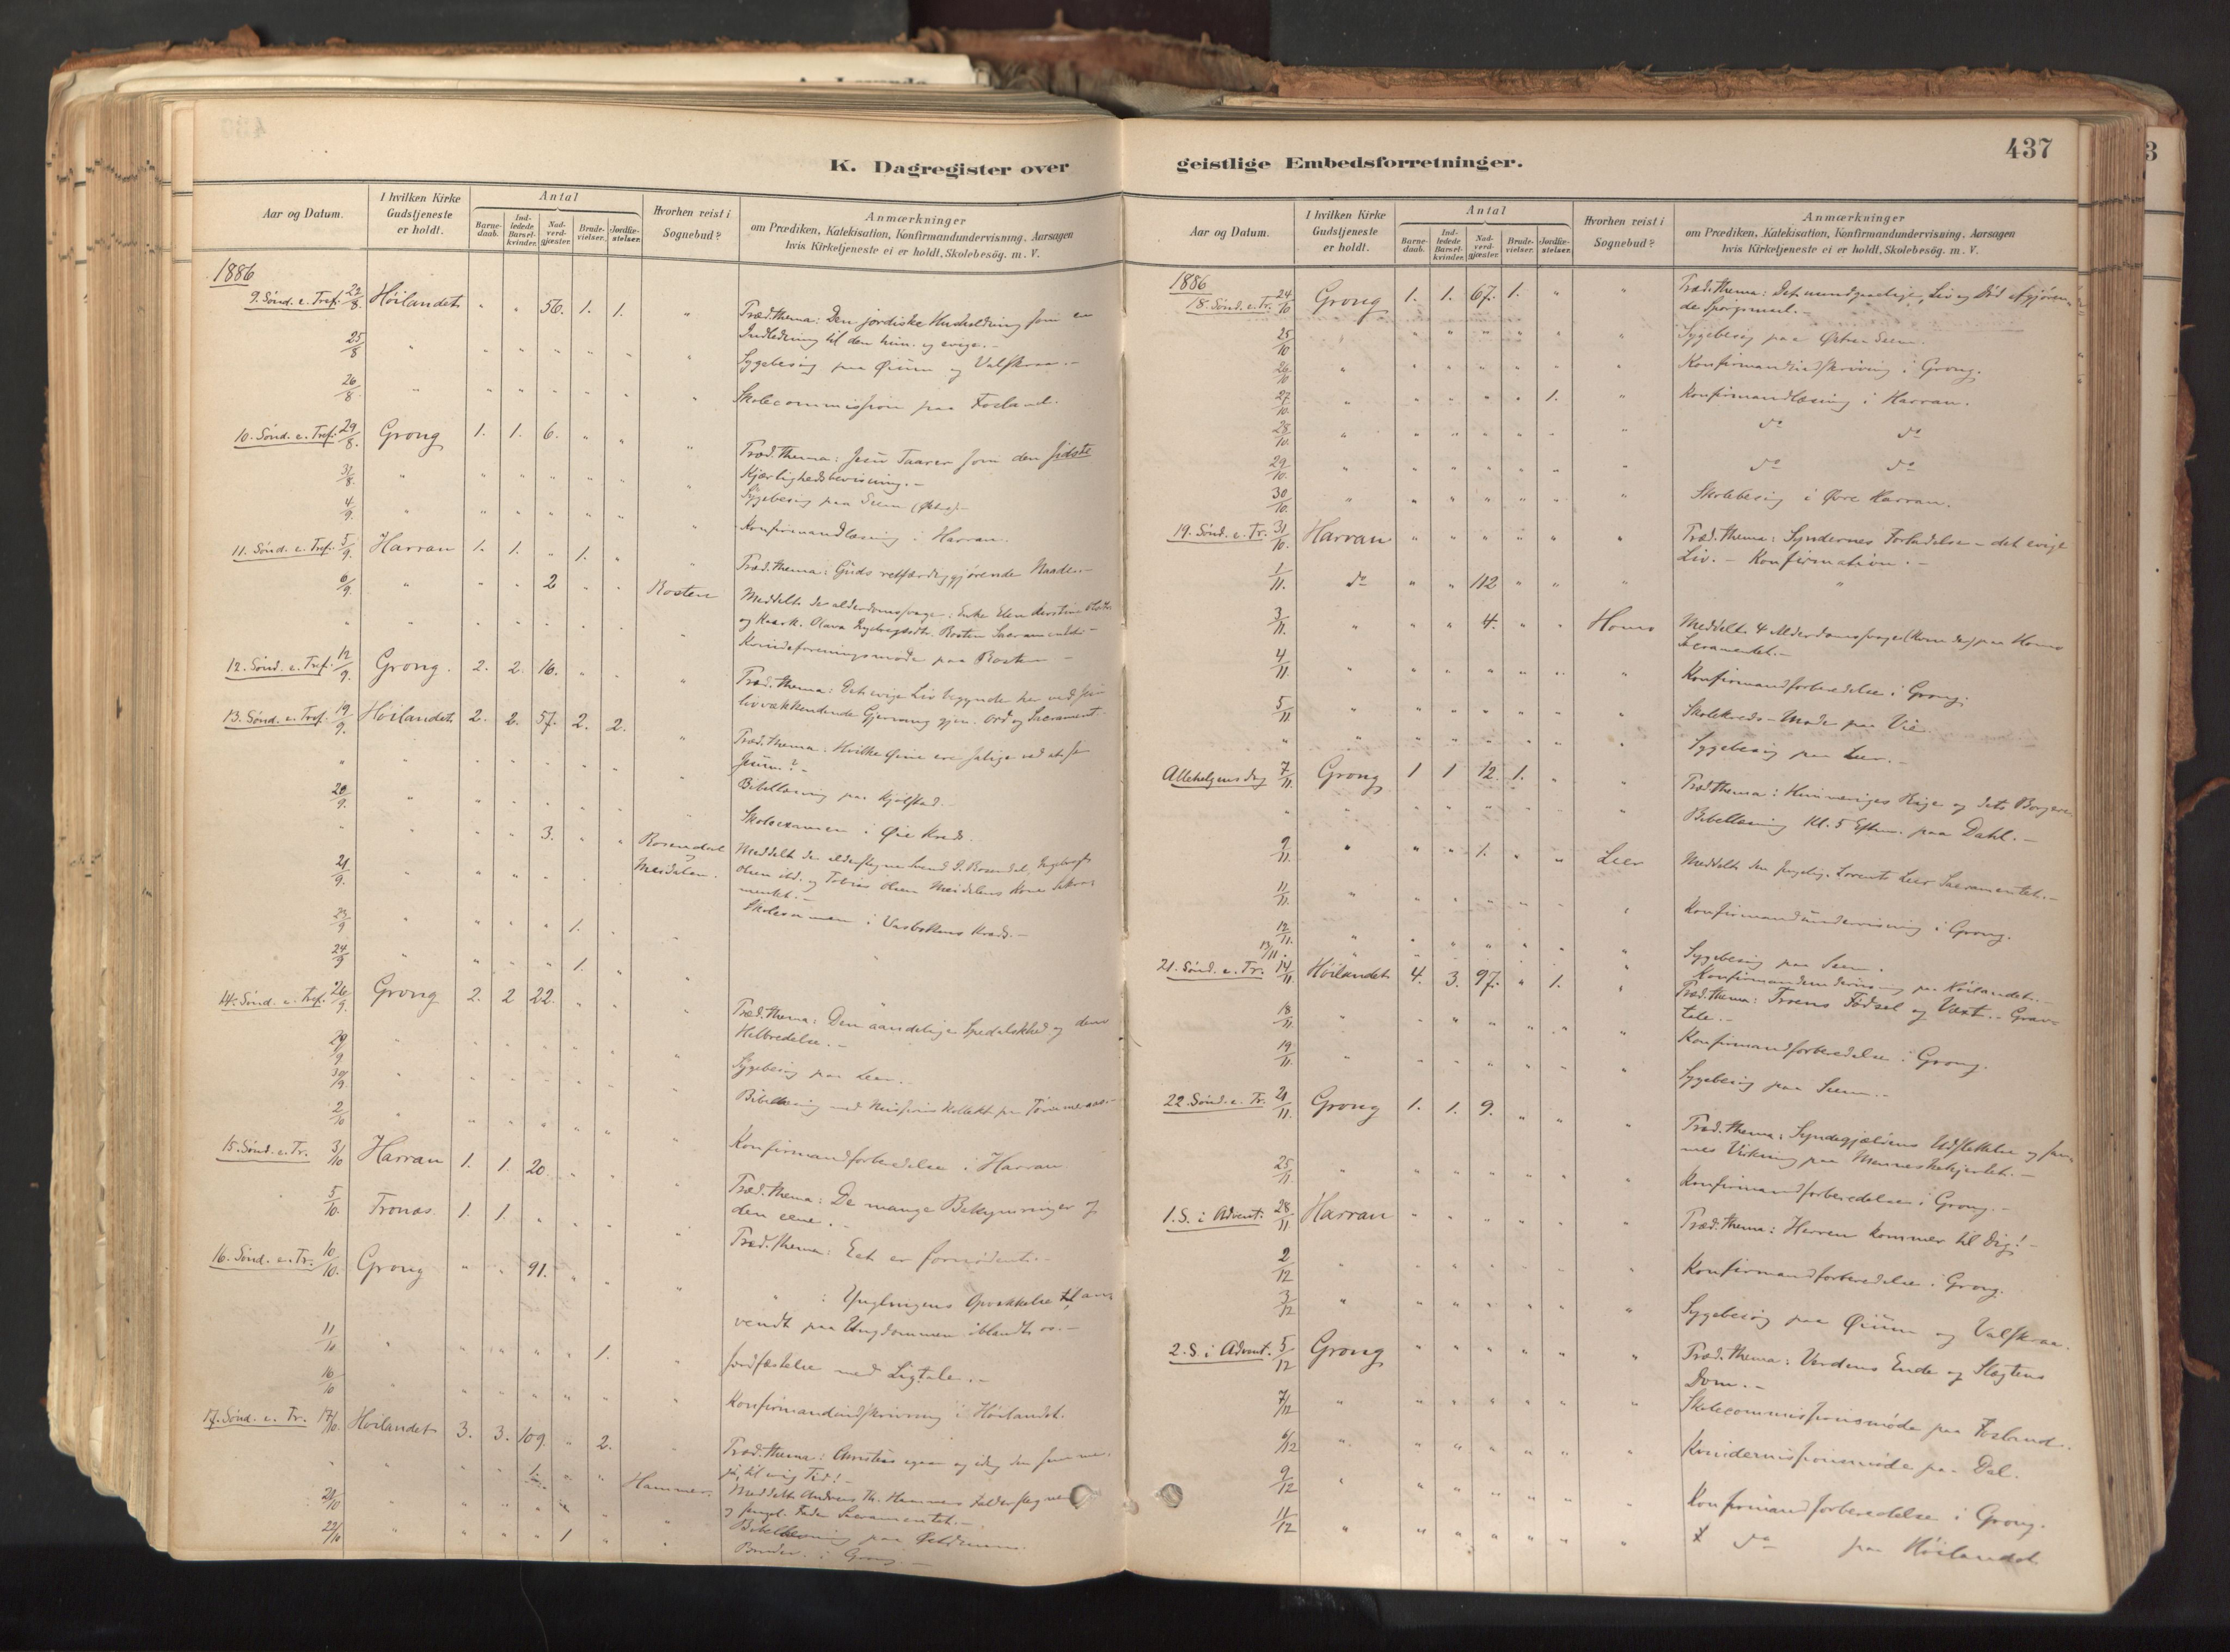 K. Dagregister over
Aar og Datum.
I hvilken Kirke Gudstjeneste er holdt.
Antal
Barnedaab.
Indledede Barselkvinder.
Nadverdgjæster.
Brudevielser.
Jordfæstelser.
Hvorhen reist i Sognebud?
Anmærkninger
om Prædiken, Katekisation, Konfirmandundervisning, Aarsagen
hvis Kirketjeneste ei er holdt, Skolebesøg. m. V.
1886
9. Sønd. e. Tref. 22/8. Høilandet " " 56. 1. 1. " Præd. thema: Den jordiske Husholdning som en
Indledning til den him. og evige.-
25/8 " " " " " " " Sygebesøg paa Øium og Valskraa.-
26/8 " " " " " " " Skolecommission paa Fosland.
10. Sønd. e. Tref. 29/8. Grong 1. 1. 6. " " " Præd. thema: Jesu Taarer som den sidste
Kjærlighedsbevisning.-
31/8. " " " " " " " Sygebesøg paa Seem
4/9. " " " " " " " Konfirmandlæsning i Harran.
11. Sønd. e. Tref. 5/9. Harran 1. 1. " 1. " " Præd. thema: Guds retfærdiggjørende Naade.-
6/9. " " " 2 " " Rosten Meddelt de alderdomssvage: Enke Elen
og Olava Rosten Sacramentet.-
" " " " " " " " Kvindeforeningsmøde paa Rosten -
12. Sønd. e. Tref. 12/9. Grong. 2. 2. 16. " " " Præd. thema: Det evige Liv begynder her ved Jesu
livvækkende Gjerning gjen. Ord og Sacrament.
13. Sønd. e. Tref. 19/9. Høilandet 2. 2. 57. 2. 2. " Præd. thema: Hvilke Øine ere salige ved at se
Jesum?-
" " " " " " " " Bibellæsning paa Kjølstad.
20/9. " " " " " " " Skoleexamen i Øie Kreds.
" " " " 3. " " Rosendal og Meidalen.
Meddelt de
Olsen ibd. og Tobias Olsen Meidalens Kone Sakramentet.-
21/9. " " " " " " Skoleexamen i Kreds.-
23/9 " " " " 1. " "
24/9 " " " " 1. " " "
14. Sønd. e. Tref. 26/9. Grong 2. 2 22. " " " Præd. thema: Den aandelige Spedalskhed og dens
Helbredelse.-
29/9 " " " " " " " Sygebesøg paa Leer.-
30/9. " " " " " " " Bibellæsning med Missions Kollekt paa
2/10 " " " " " " " Konfirmandforberedelse i Harran
15. Sønd. e. Tr. 3/10 Harran 1. 1. 20. " " " Præd. thema: De mange Bekymringer og
den eene.-
5/10. Tronæs. 1. 1. " " " " Præd. thema: Eet er fornødent.-
16. Sønd. e. Tr. 10/10. Grong " " 91. " " " " : Ynglingens Opvækkelse til anvendt paa Ungdommen iblandt os.-
11/10 " " " " " 1. " Jordfæstelse med Ligtale.-
16/10 " " " " " " " Konfirmandindskrivning i Høilandet.
17. Sønd. e. Tr. 17/10. Høilandet 3. 3. 109. " 2. " Præd. thema: Christus igaar og idag den samme,
ja, til evig Tid!-
" " " " 1. " " Hammer. Meddelt Andreas Th. Hammers
Fader Sacramentet.-
21/10 " " " " " " " Bibellæsning paa
22/10 " " " " 1 " " Bruder. i Grong.-
geistlige Embedsforretninger.
437
Aar og Datum.
I hvilken Kirke Gudstjeneste er holdt.
Antal
Barnedaab.
Indledede Barselkvinder.
Nadverdgjæster.
Brudevielser.
Jordfæstelser.
Hvorhen reist i Sognebud?
Anmærkninger
om Prædiken, Katekisation, Konfirmandundervisning, Aarsagen
hvis Kirketjeneste ei er holdt, Skolebesøg. m. V.
1886
18. Sønd. e. Tr. 24/10 Grong 1. 1. 67. 1. " " Præd. thema: Det uundgaaelige, Liv og Død afgjørende Spørgsmaal.-
25/10 " " " " " " " Sygebesøg paa Østre Seem.
26/10 " " " " " " " Konfirmandindskrivning i Grong.
27/10. " " " " " 1. " Konfirmandlæsning i Harran.
28/10. " " " " " " " do do
29/10. " " " " " " " do do
30/10. " " " " " " " Skolebesøg i Øvre Harran.
19. Sønd. e. Tr. 31/10. Harran " " " " " " Præd. thema: Syndernes Forladelse - det evige
Liv.- Konfirmation.-
1/11. do " " 112 " " " "
3/11. " " " 4. " " Homo Meddelt 4 Alderdomssvage paa Homo
Sacramentet.-
4/11 " " " " " " " Konfirmandforberedelse i Grong.
5/11 " " " " " " " Skolekreds-Møde paa Vie
" " " " " " " " Sygebesøg paa Leer.-
Allehelgensdag 7/11. Grong 1 1 12. 1. " " Præd. thema: Himmeriges Rige og dets Borgere
" " " " " " " " Bibellæsning Kl. 5 Efterm. paa Dahl.-
9/11. " " " 1. " " Leer Meddelt den sygelige Lorents Leer Sacramentet.-
11/11. " " " " " " " Konfirmandundervisning i Grong.
12/11. " " " " " " " Sygebesøg paa Seem.
13/11. " " " " " " " Konfirmandundervisning paa Høilandet.-
21. Sønd. e. Tr. 14/11 Høilandet 4. 3. 97. " 1. " Præd. thema: Troens Fødsel og Væxt.- Gravtale.-
18/11 " " " " " " " Konfirmandforberedelse i Grong.
19/11. " " " " " " " Sygebesøg paa Seem.-
22. Sønd. e. Tr. 21/11. Grong 1. 1. 9. " " " Præd. thema: Syndegjældens Udslettelse og sammes Virkning paa Menneskehjertet.-
25/11. " " " " " " " Konfirmandforberedelse i Grong.-
1. S. i Advent. 28/11 Harran " " " " " " Præd. thema: Herren kommer til Dig!-
2/12 " " " " " " " Konfirmandforberedelse i Grong.
3/12 " " " " " " " Sygebesøg paa Øium og Valskraa.
2. S. i Advent. 5/12 Grong " " " " " " Præd. thema: Verdens Ende og Slægtens
Dom.-
7/12 " " " " " " " Skolecommissionsmøde paa Fosland.
6/12 " " " " " " " Kvindemissionsmøde paa Dal.
9/12 " " " " " " " Konfirmandforberedelse i Grong.
11/12 " " " " " " " do paa Høilandet